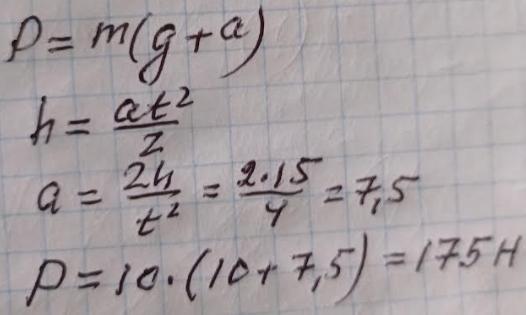 P = m(g + a)
h = at²/2
a = 2h/t² = 2·15/4 = 7,5
P = 10·(10 + 7,5) = 175 Н